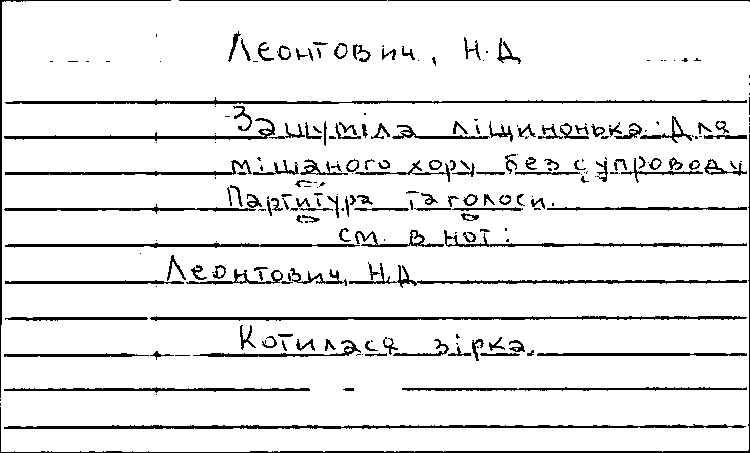 Леонтович, Н.Д
Зашуміла ліщинонька: Для
мішаного хору без супроводу
Партитура та голоси.
см. в нот:
Леонтович, Н.Д
Котилася зірка.